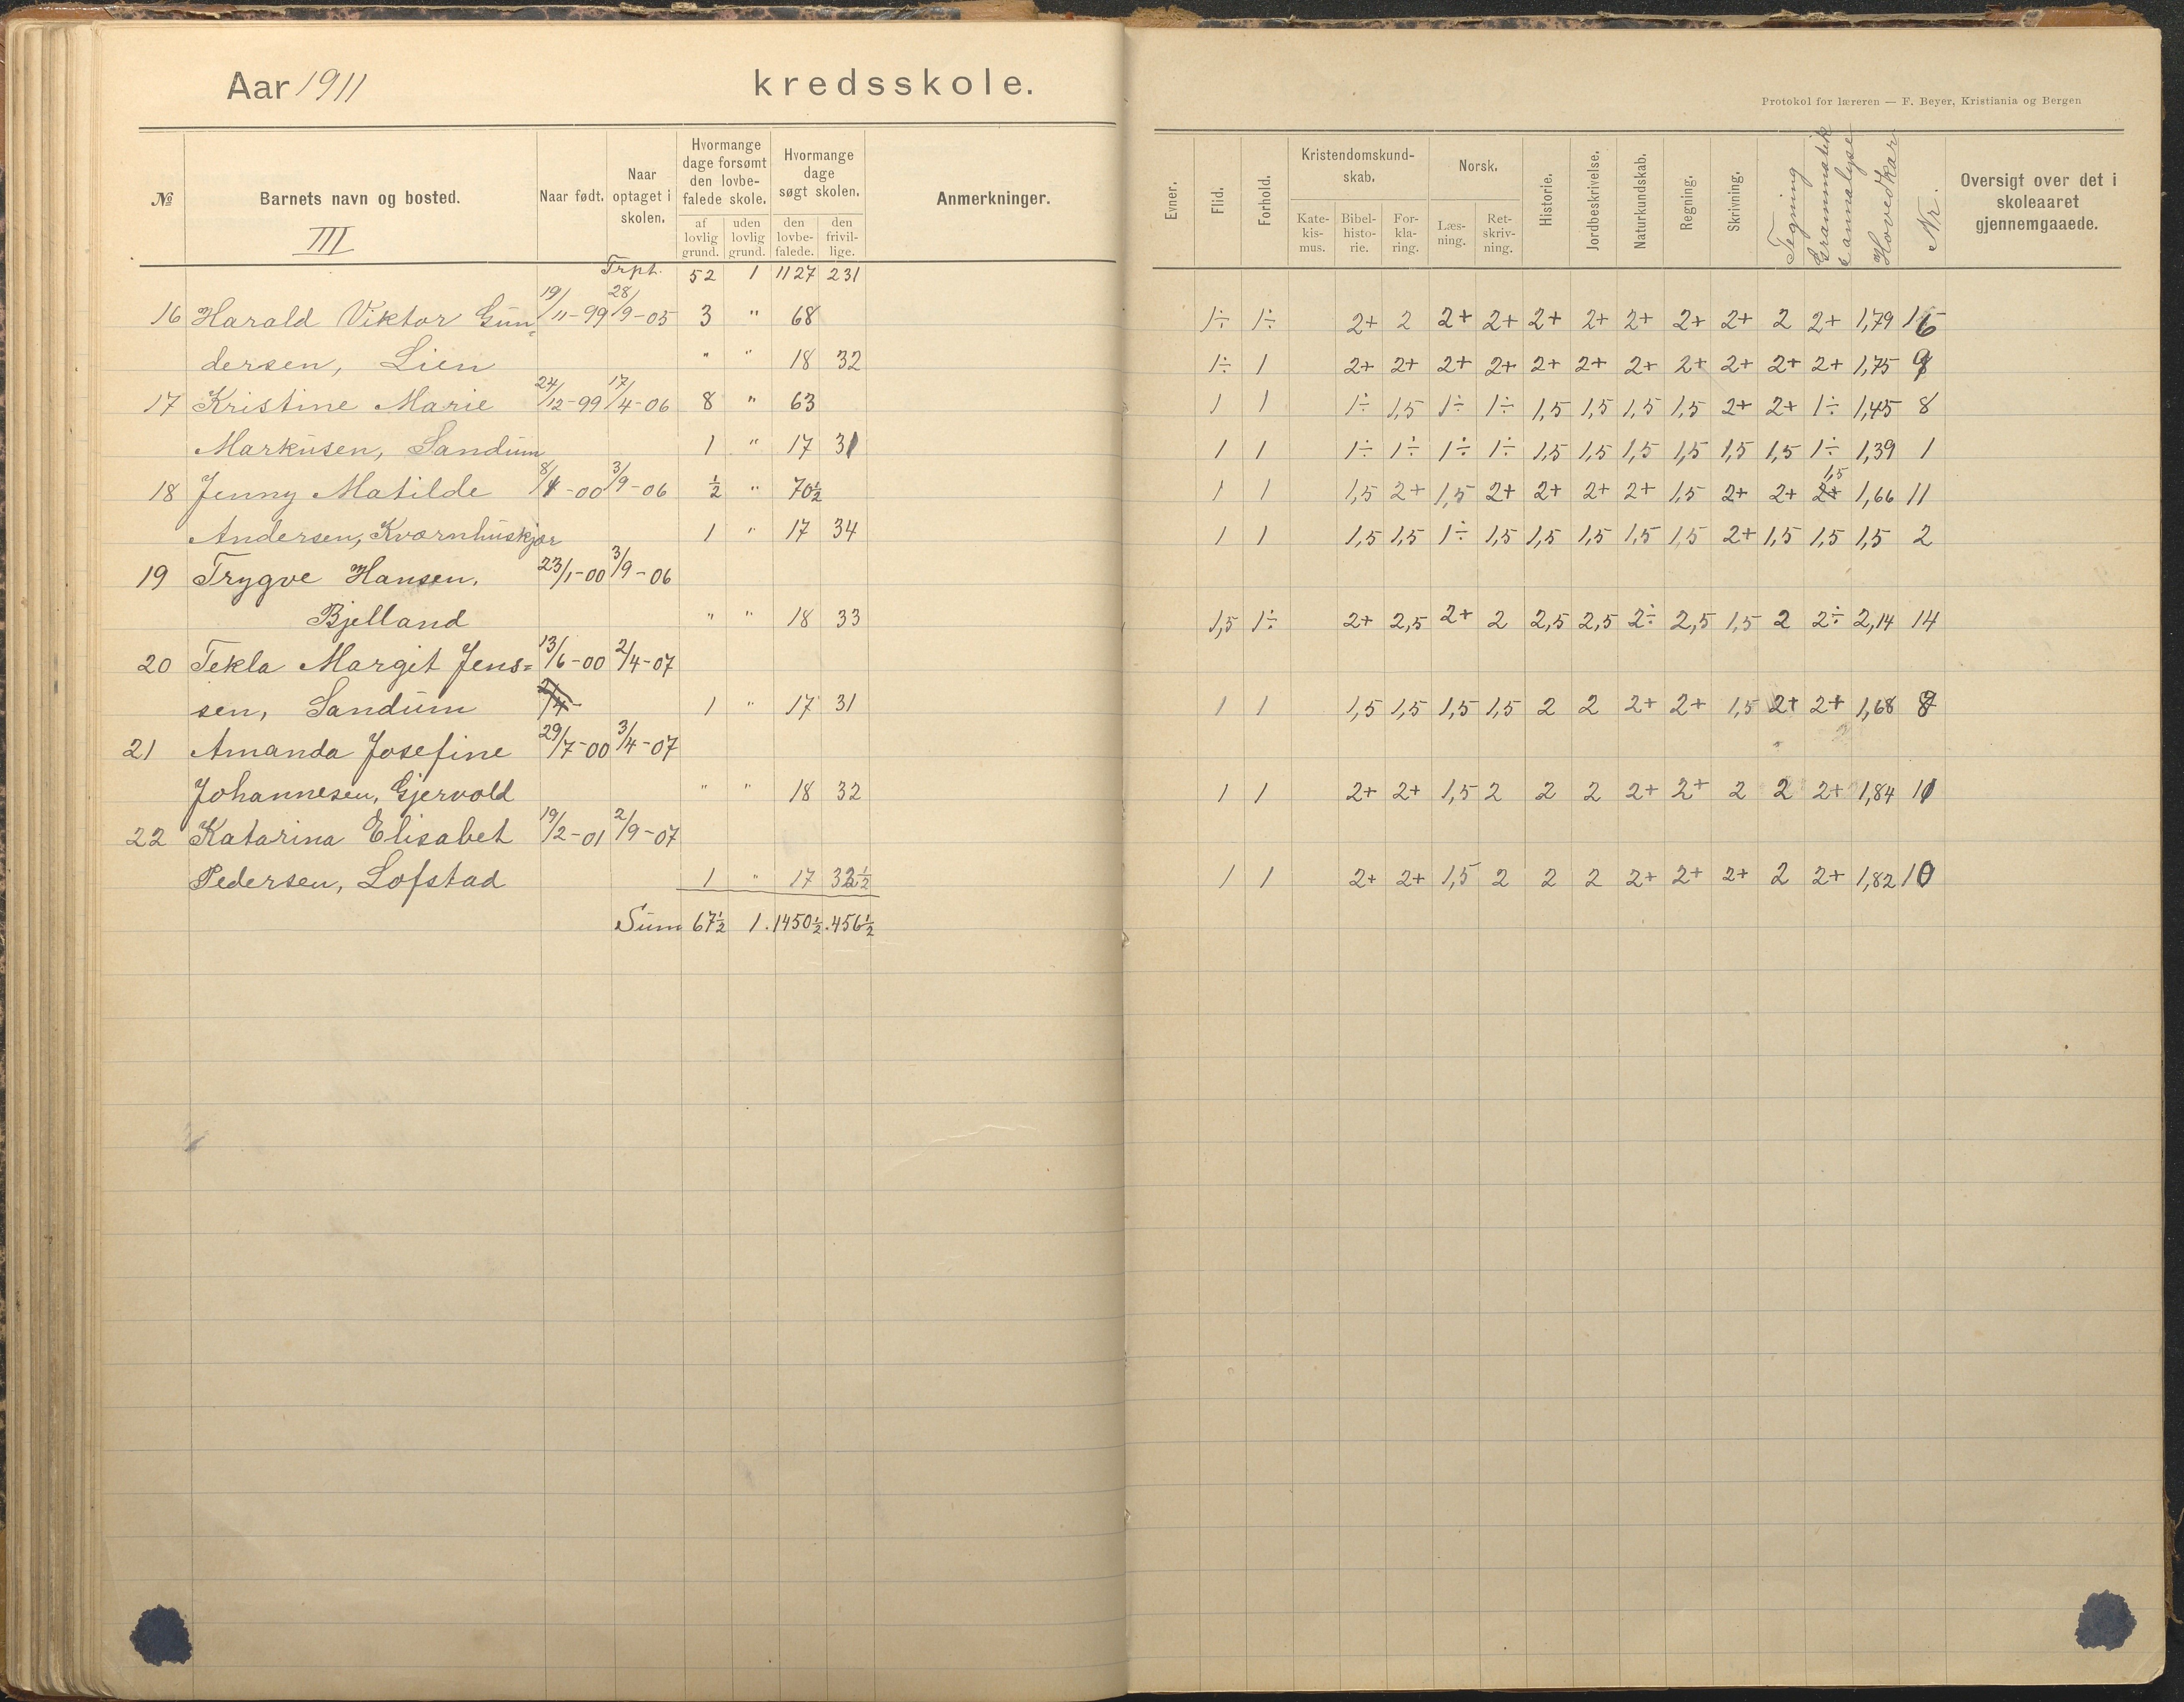 Aar 1911 kredsskole.
Protokol for læreren — F. Beyer, Kristiania og Bergen
№ Barnets navn og bosted. Naar født. Naar optaget i skolen. Hvormange dage forsømt den lovbefalede skole. Hvormange dage søgt skolen. Anmerkninger.
af lovlig grund. uden lovlig grund. den lovbefalede. den frivillige.
III
Evner. Flid. Forhold. Kristendomskundskab. Norsk. Historie. Jordbeskrivelse. Naturkundskab. Regning. Skrivning. Tegning Grammatik & analyse Hovedkar Nr. Oversigt over det i skoleaaret gjennemgaaede.
Katekismus. Bibelhistorie. Forklaring. Læsning. Retskrivning.
Trpt. 52 1 1127 231
16 Harald Viktor Gun= 19/11-99 28/9-05 3 " 68 1÷ 1÷ 2+ 2 2+ 2+ 2+ 2+ 2+ 2+ 2+ 2 2+ 1,79
dersen, Lien " " 18 32 1÷ 1 2+ 2+ 2+ 2+ 2+ 2+ 2+ 2+ 2+ 2+ 2+ 1,75 9
17 Kristine Marie 24/12-99 17/4-06 8 " 63 1 1 1÷ 1,5 1÷ 1÷ 1,5 1,5 1,5 1,5 2+ 2+ 1÷ 1,45 8
Markusen, Sandum 1 " 17 31 1 1 1÷ 1÷ 1÷ 1÷ 1,5 1,5 1,5 1,5 1,5 1,5 1÷ 1,39 1
18 Jenny Matilde 8/4-00 3/9-06 ½ " 70½ 1 1 1,5 2+ 1,5 2+ 2+ 2+ 2+ 1,5 2+ 2+ 1,5 2+ 1,66 11
Andersen, Kvørnhuskjær 1 " 17 34 1 1 1,5 1,5 1÷ 1,5 1,5 1,5 1,5 1,5 2+ 1,5 1,5 1,5 2
19 Trygve Hansen, 23/1-00 3/9-06
Bjelland " " 18 33 1,5 1÷ 2+ 2,5 2+ 2 2,5 2,5 2÷ 2,5 1,5 2 2÷ 2,14 14
20 Tekla Margit Jens= 13/6-00 2/4-07
sen, Sandum 2/4- 1 " 17 31 1 1 1,5 1,5 1,5 1,5 2 2 2+ 2+ 1,5 2+ 2+ 1,68
21 Amanda Josefine 29/7-00 3/4-07
Johannesen, Gjervold " " 18 32 1 1 2+ 2+ 1,5 2 2 2 2+ 2+ 2 2 2+ 1,84 11
22 Katarina Elisabet 19/2-01 2/9-07
Pedersen, Lofstad 1 " 17 32½ 1 1 2+ 2+ 1,5 2 2 2 2+ 2+ 2+ 2 2+ 1,82 10
Sum 67½ 1. 1450½. 456½